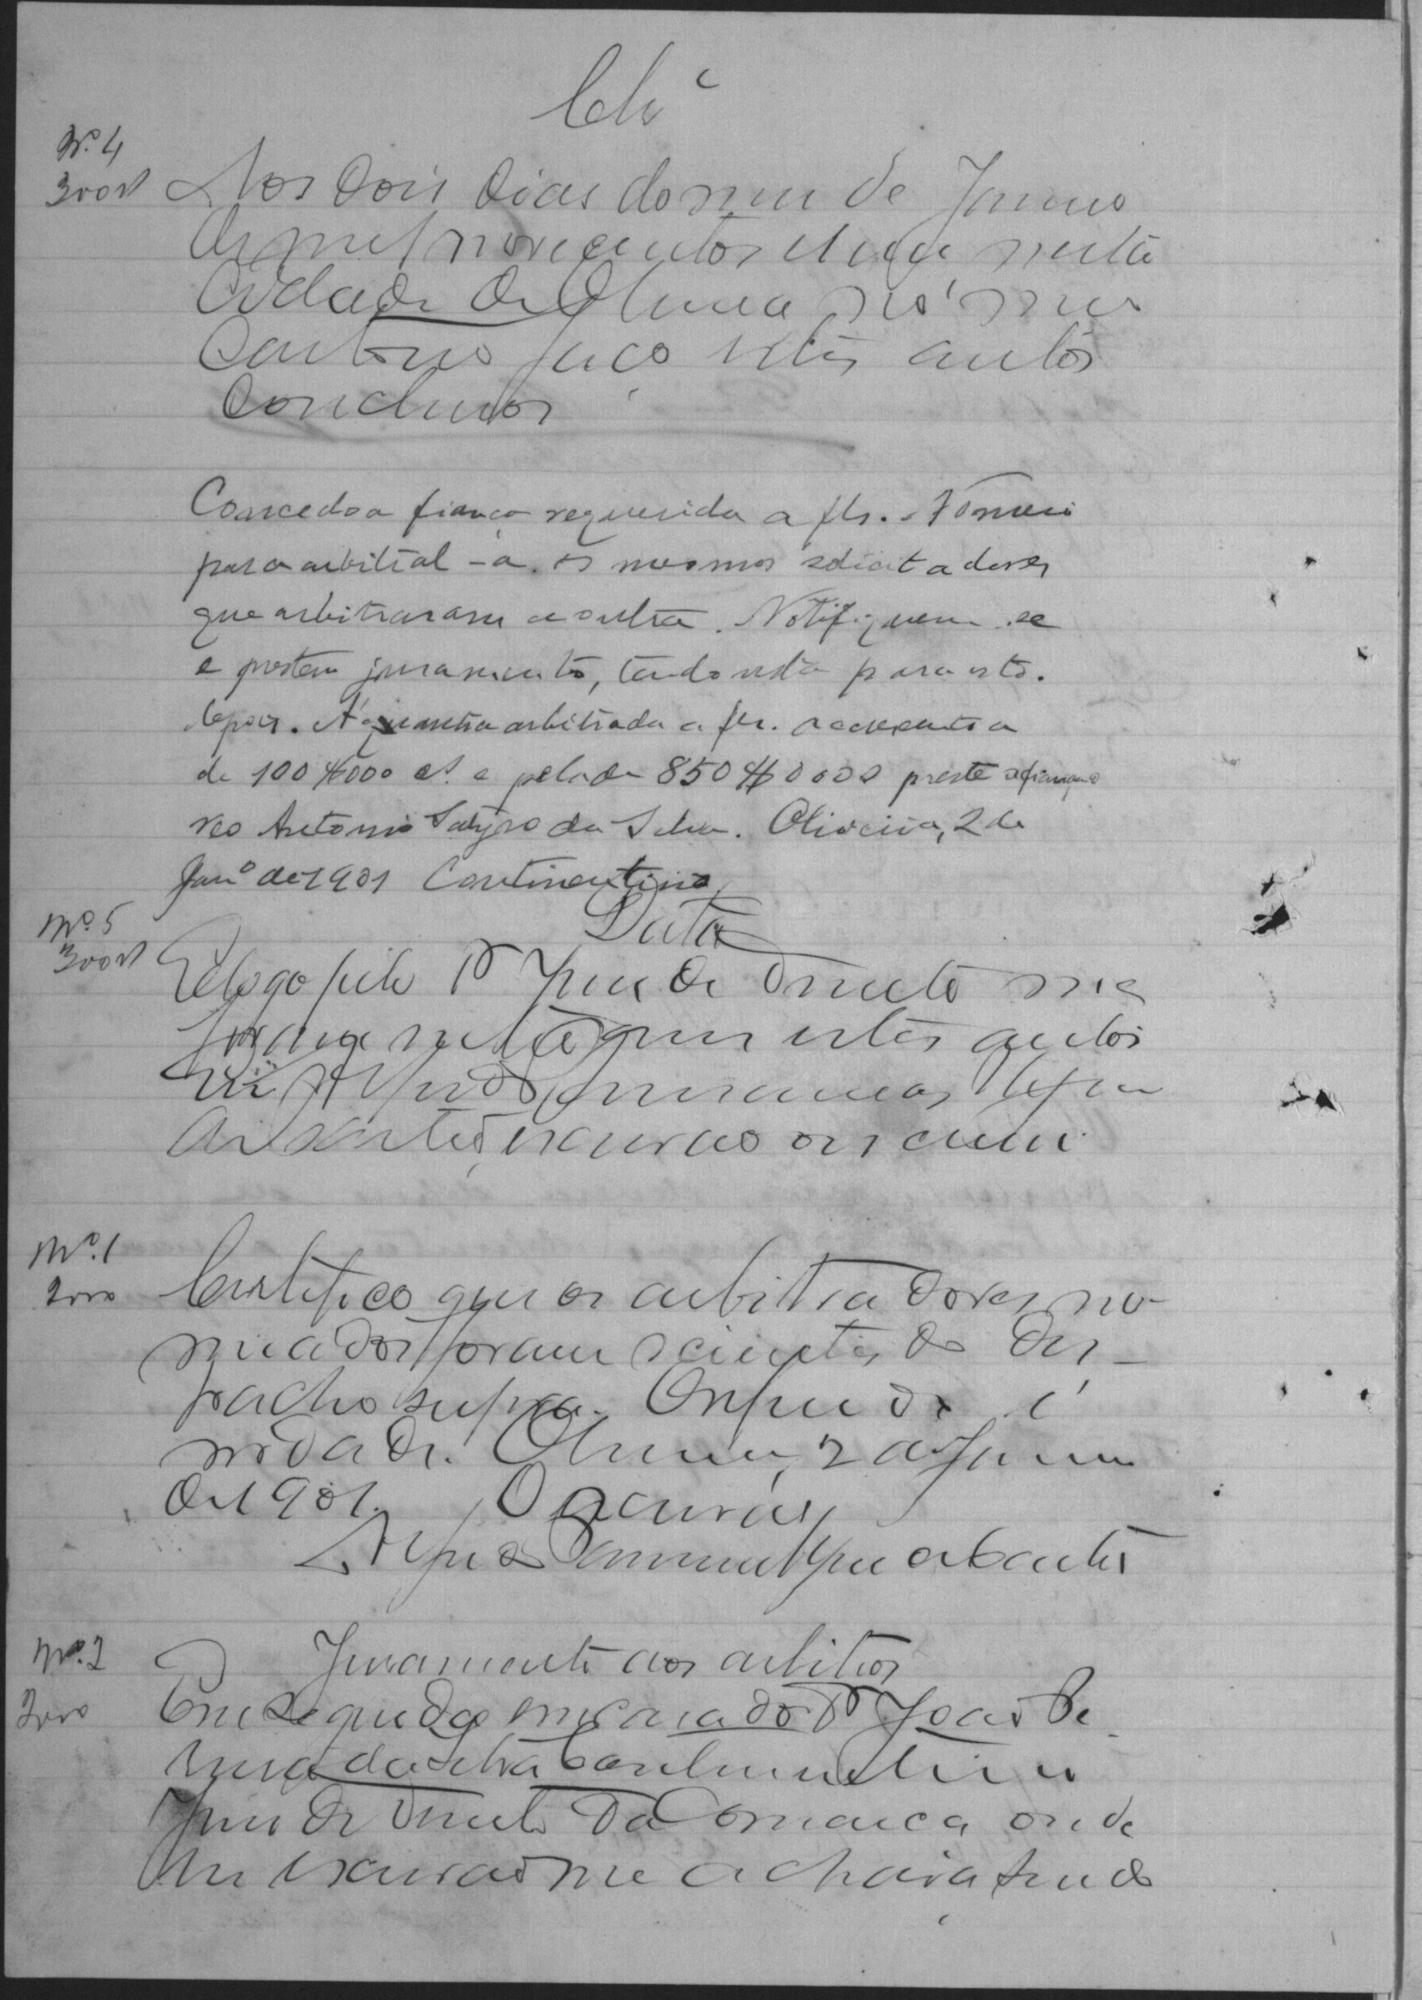 Clsº
Nº 4
300rs
Aos dois dias do mes de Janeiro
de mil novecentos e um nesta
Cidade de Oliveira no meu
Cartorio faço estes autos
Conclusos
Concedo a fiança requerida a fls. Nomeio
para arbitral-a os mesmos solicitadores
que arbitraram a outra. Notifiquem-se
e prestem juramento, tendo vista para isto.
depois. A quantia arbitrada a fls. accrescenta
de 100$000 rs. e pela de 850$000 preste a fiança o
reo Antonio da Silva. Oliveira, 2 de
Janº de 1901 Continentino
Data
Nº 5
300rs
E logo pelo Dr Juiz de Direito me
foram estes autos
escrivão o escrevi.
Nº 1
2000
Certifico que os arbitradores no-
meados foram scientes do des-
pacho supra. O referido é
verdade. Oliveira, 2 de Janeiro
de 1901. O escrivão
Nº 2
2000
Juramento aos arbitros
Em seguida em casa do Dr João Pe
reira da Silva Continentino
Juiz de Direito da Comarca onde
eu escrivão me achava sendo